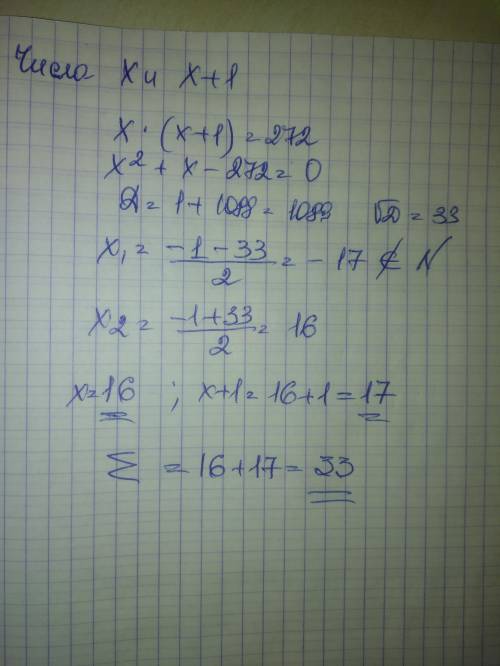 Числа x и x+1
x · (x+1) = 272
x² + x - 272 = 0
D = 1 + 1088 = 1089 √D = 33
x₁ = (-1-33)/2 = -17 ∉ N
x₂ = (-1+33)/2 = 16
x=16 ; x+1 = 16+1 = 17
Σ = 16+17 = 33